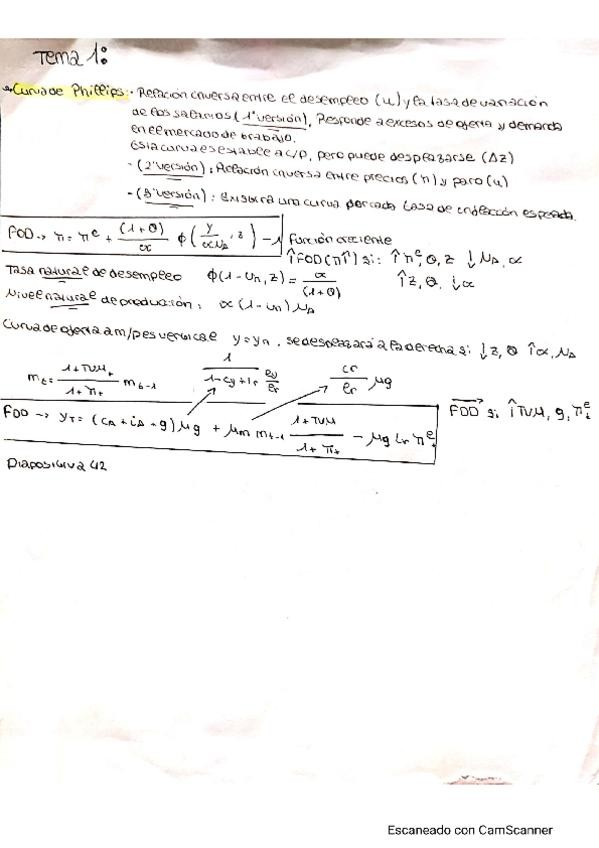 Tema 1:
Curva de Phillips: · Relación inversa entre el desempleo (u) y la tasa de variación
de los salarios (1ª versión), Responde a excesos de oferta y demanda
en el mercado de trabajo.
Esta curva es estable a c/p, pero puede desplazarse (Δz)
- (2ª versión): Relación inversa entre precios (π) y paro (u)
- (3ª versión): Existirá una curva por cada tasa de inflación esperada.
FOD → π = πᵉ + (1+θ)/α φ(y/αN_A, z) - 1 Función creciente
↑FOD (π↑) si: ↑πᵉ, θ, z ↓N_A, α
Tasa natural de desempleo φ(1-u_n, z) = α/(1+θ) ↑z, θ, ↓α
Nivel natural de producción: α(1-u_n)N_A
Curva de oferta a m/p es vertical y=y_n, se desplazará a la derecha si ↓z, θ ↑α, N_A
m_t = (1+TVM_t)/(1+π_t) m_t-1 1/(1-c_y+i_r e_y/e_r) c_r/e_r μg
FDD → y_t = (c_A+i_A+g)μg + μ_m m_t-1 (1+TVM)/(1+π_t) - μg i_r πᵉ_t FDD→ si ↑TVM, g, πᵉ_t
Diapositiva 42
Escaneado con CamScanner